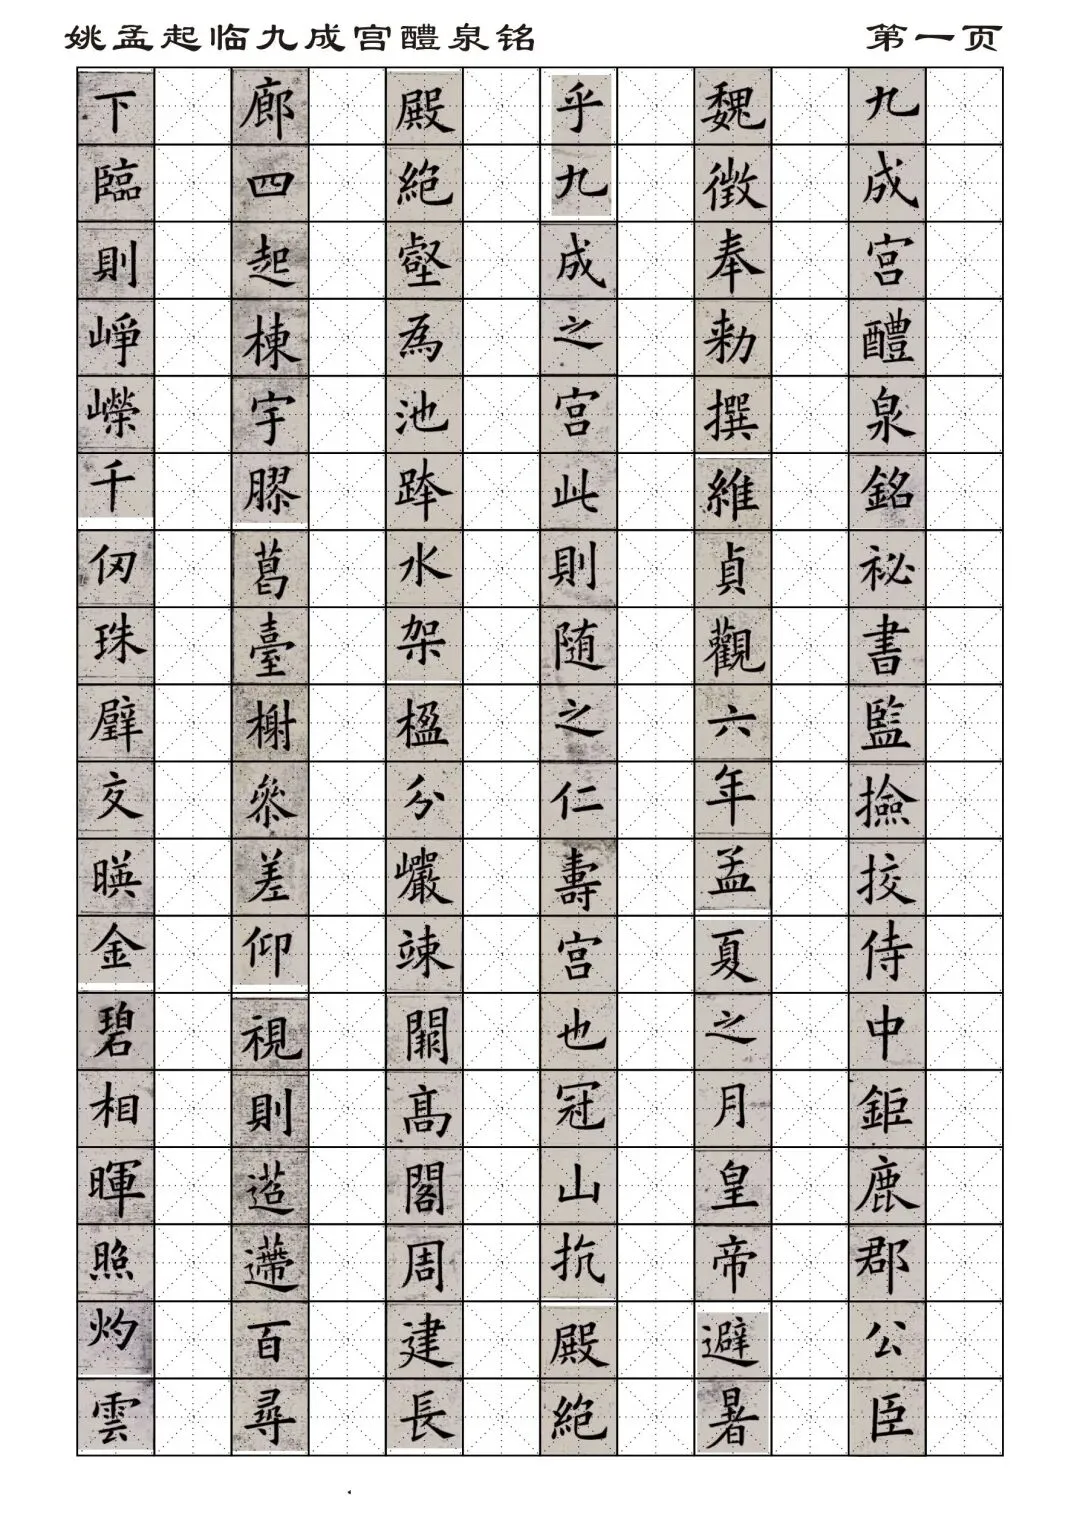 姚孟起临九成宫醴泉铭 第一页
九成宫醴泉銘祕書監撿挍侍中鉅鹿郡公臣
魏徵奉勑撰維貞觀六年孟夏之月皇帝避暑
乎九成之宫此則随之仁壽宫也冠山抗殿絶
殿絶壑為池跨水架楹分巖竦闕高閣周建長
廊四起棟宇膠葛臺榭參差仰視則迢遰百尋
下臨則崢嶸千仞珠璧交暎金碧相暉照灼雲